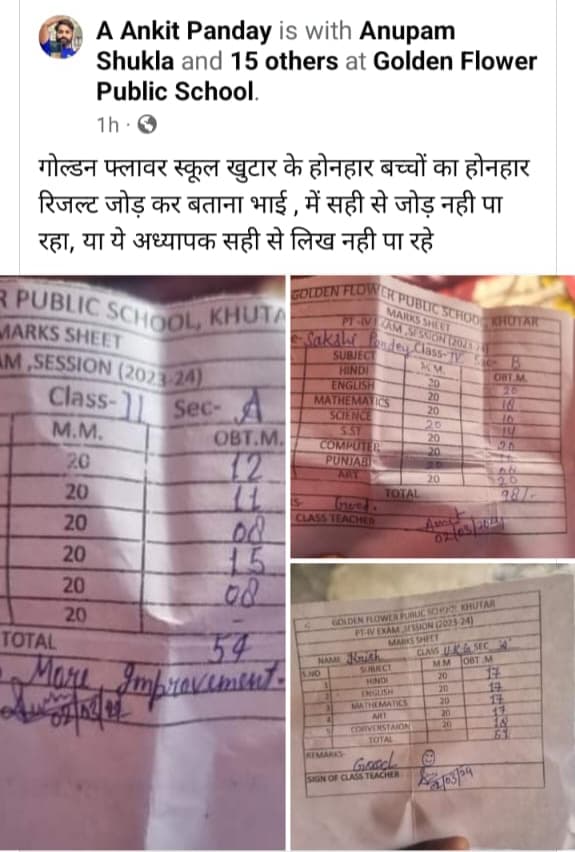 A Ankit Panday is with Anupam
Shukla and 15 others at Golden Flower
Public School.
1h ·
गोल्डन फ्लावर स्कूल खुटार के होनहार बच्चों का होनहार
रिजल्ट जोड़ कर बताना भाई , में सही से जोड़ नही पा
रहा, या ये अध्यापक सही से लिख नही पा रहे
R PUBLIC SCHOOL, KHUTA
MARKS SHEET
AM ,SESSION (2023-24)
Class- II Sec- A
M.M. OBT.M.
20 12
20 11
20 08
20 15
20 08
20 -
TOTAL 54
More Improvement
GOLDEN FLOWER PUBLIC SCHOO KHUTAR
MARKS SHEET
PT -IV EXAM ,SESSION (2023
Sakshi Pandey Class- IV Sec- B
SUBJECT M.M. OBT.M.
HINDI 20 20
ENGLISH 20 18
MATHEMATICS 20
SCIENCE 20 14
S.ST 20
COMPUTER 20
PUNJABI
ART 20 20
TOTAL 98/-
Good.
CLASS TEACHER
GOLDEN FLOWER PUBLIC SCHOOL KHUTAR
PT-IV EXAM ,SESSION (2023-24)
MARKS SHEET
NAME CLASS U.K.G SEC
S.NO SUBJECT M.M OBT.M
1 HINDI 20 17
2 ENGLISH 20
3 MATHEMATICS 20 17
4 ART 20 17
5 20 18
TOTAL
REMARKS- Good
SIGN OF CLASS TEACHER